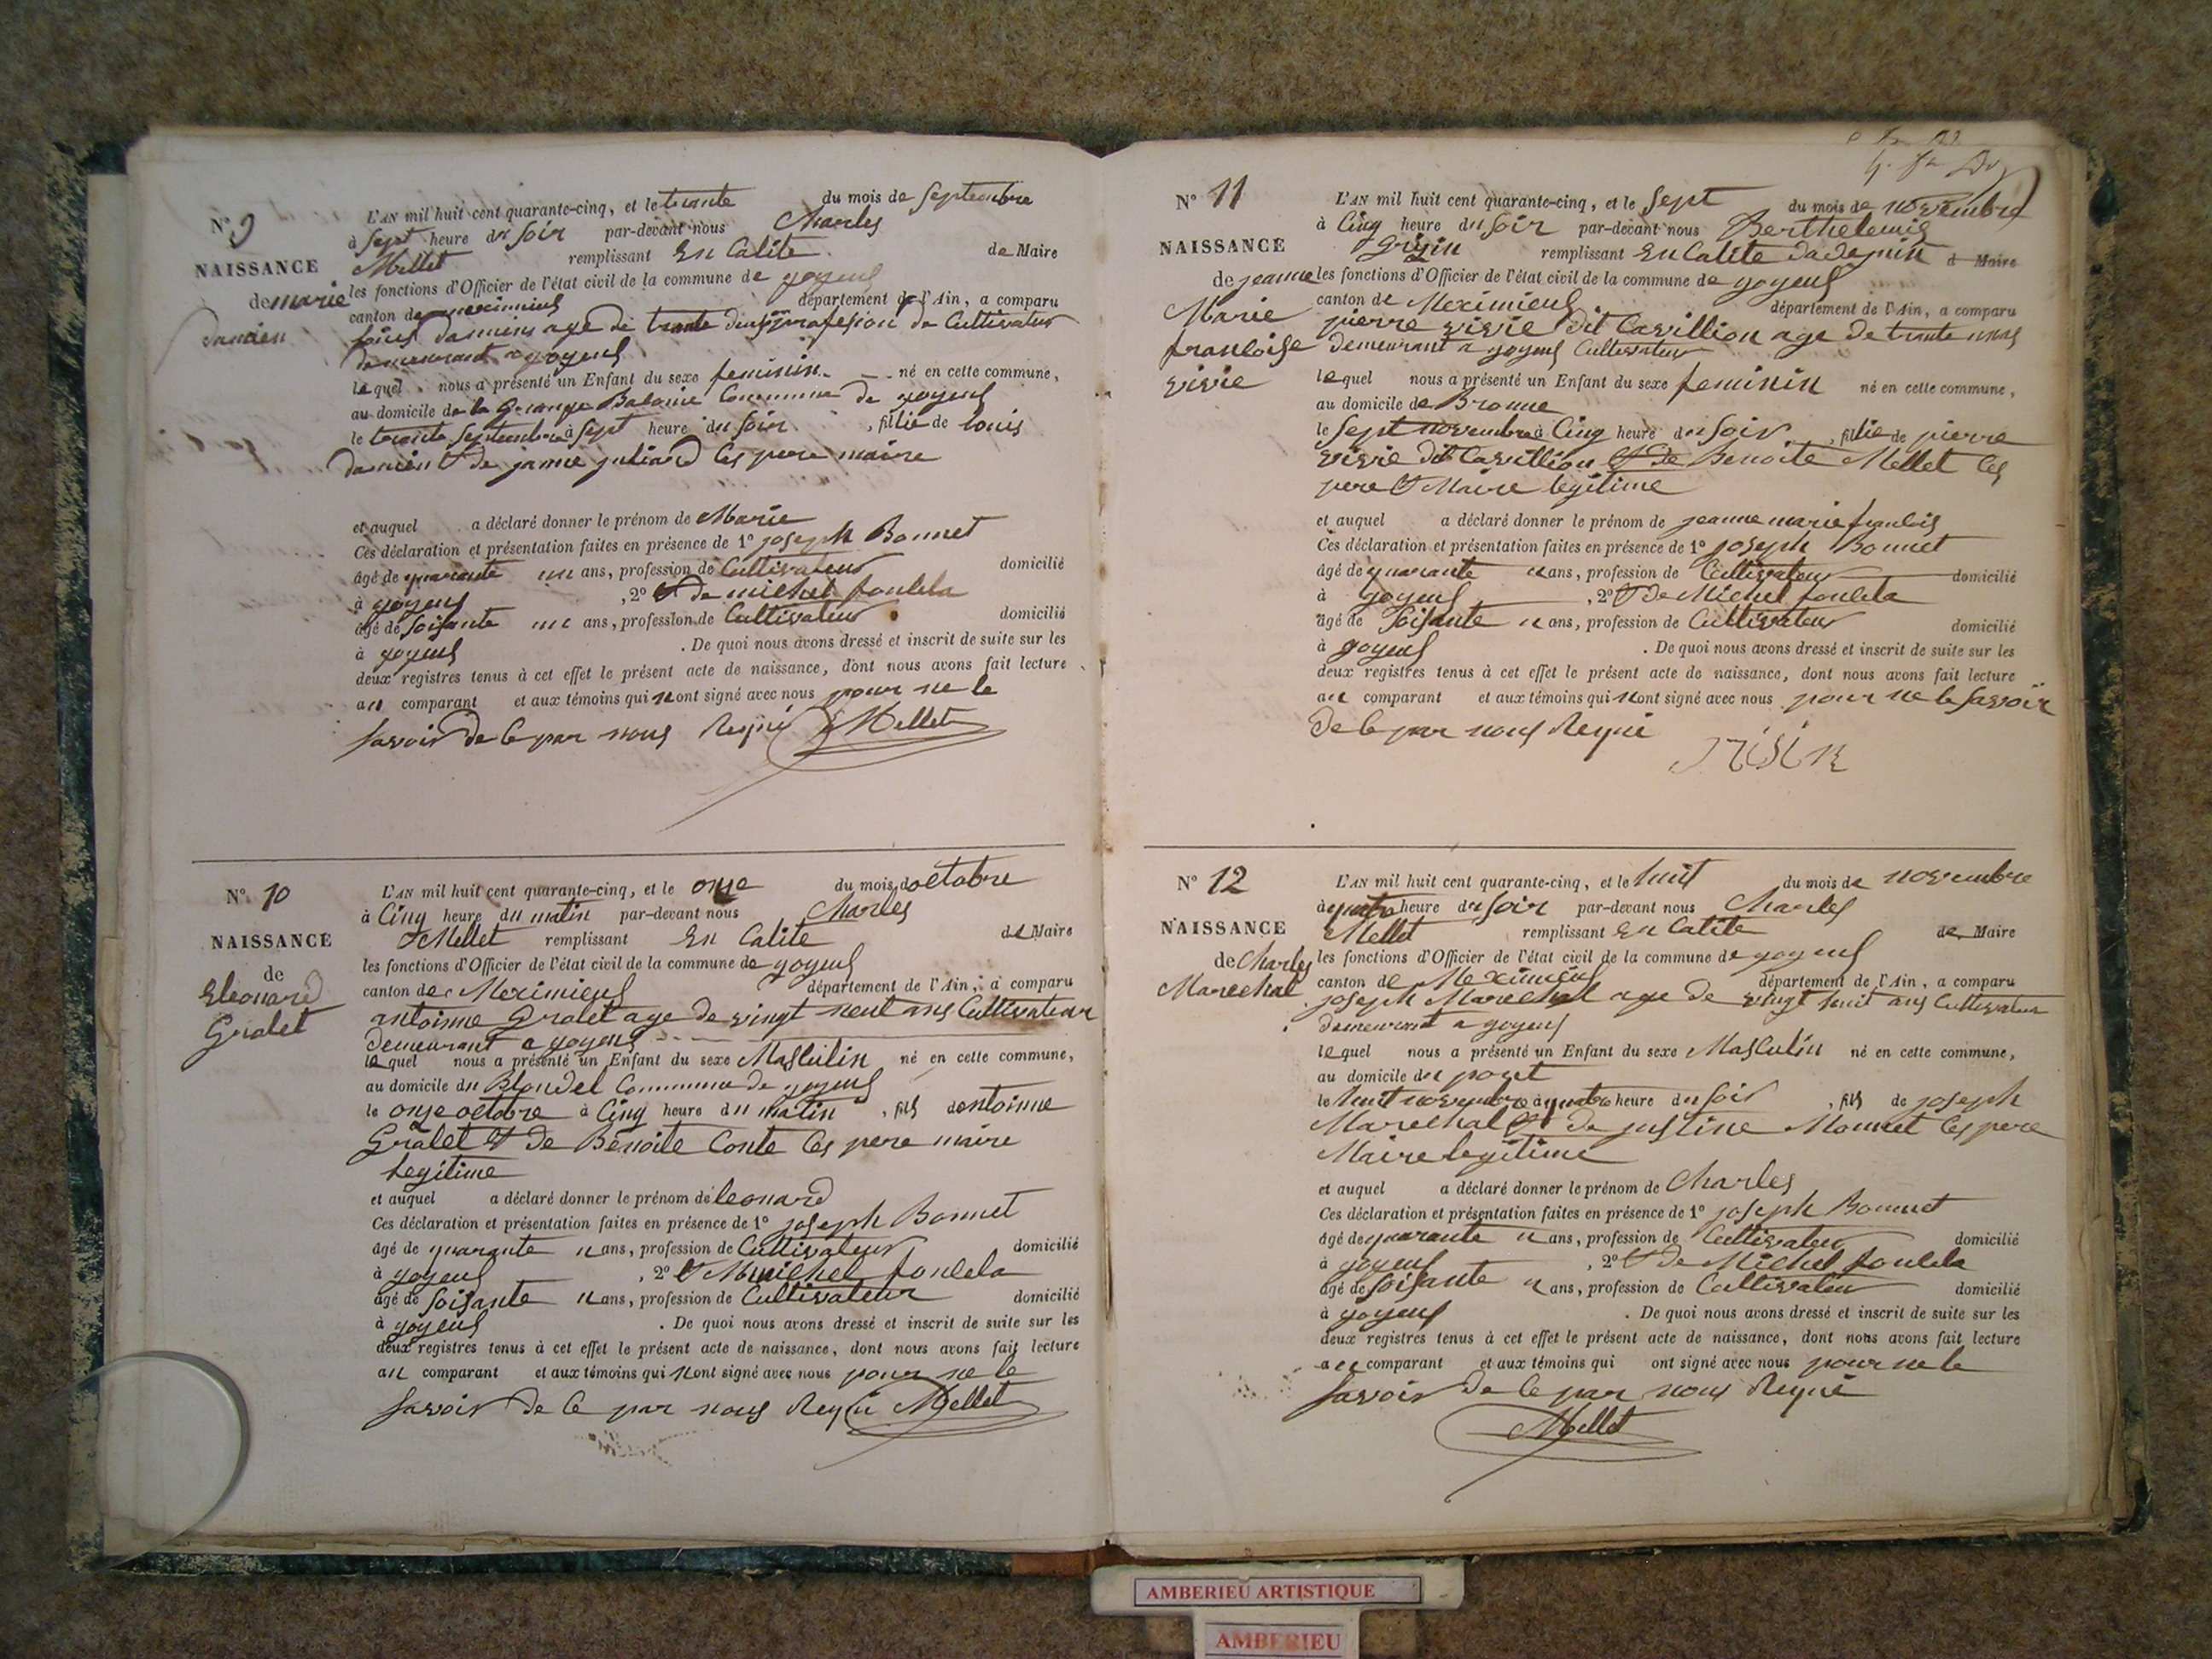 N° 9
NAISSANCE
de marie
damien
L'AN mil huit cent quarante-cinq, et le trante du mois de Septembre
à Sept heure du Soir par-devant nous Charles
Mellet remplissant En Calite de Maire
les fonctions d'Officier de l'état civil de la commune de joyeus
canton de meximieus département de l'Ain, a comparu
louis damien age de trante deus profession de Cultivateur
demeurant a joyeus
lequel nous a présenté un Enfant du sexe feminin né en cette commune,
au domicile de la Grange Balanie Commune de joyeus
le trante Septembre à Sept heure du Soir, fillie de louis
damien & de janne juliard Ces pere maire
et auquel a déclaré donner le prénom de Marie
Ces déclaration et présentation faites en présence de 1° joseph Bonnet
âgé de quarante un ans, profession de Cultivateur domicilié
à joyeus, 2° & de michel foulela
âgé de Soisante un ans, profession de Cultivateur domicilié
à joyeus. De quoi nous avons dressé et inscrit de suite sur les
deux registres tenus à cet effet le présent acte de naissance, dont nous avons fait lecture
au comparant et aux témoins qui nont signé avec nous pour ne le
savoir de Ce par nous Requi Mellet
N° 10
NAISSANCE
de
Eleonard
Gralet
L'AN mil huit cent quarante-cinq, et le onze du mois doctobre
à Cinq heure du matin par-devant nous Charles
Mellet remplissant En Calite de Maire
les fonctions d'Officier de l'état civil de la commune de joyeus
canton de Meximieus département de l'Ain, a comparu
antoinne Gralet age de vingt neuf ans Cultivateur
demeurant a joyeus
lequel nous a présenté un Enfant du sexe Masculin né en cette commune,
au domicile du Blondel Commune de joyeus
le onze octobre à Cinq heure du matin, fils dantoinne
Gralet & de Benoite Conte Ces pere maire
legitime
et auquel a déclaré donner le prénom de leonard
Ces déclaration et présentation faites en présence de 1° joseph Bonnet
âgé de quarante u ans, profession de Cultivateur domicilié
à joyeus, 2° & Michel foulela
âgé de Soisante u ans, profession de Cultivateur domicilié
à joyeus. De quoi nous avons dressé et inscrit de suite sur les
deux registres tenus à cet effet le présent acte de naissance, dont nous avons fait lecture
au comparant et aux témoins qui nont signé avec nous pour ne le
savoir de Ce par nous Requi Mellet
N° 11
NAISSANCE
de jeanne
Marie
francoise
vivie
L'AN mil huit cent quarante-cinq, et le Sept du mois de novembre
à Cinq heure du Soir par-devant nous Berthelemis
remplissant En Calite dademin d Maire
les fonctions d'Officier de l'état civil de la commune de joyeus
canton de Meximieus département de l'Ain, a comparu
pierre vivie dit Cavillion age de trante
demeurant a joyeus Cultivateur
lequel nous a présenté un Enfant du sexe feminin né en cette commune,
au domicile de Bronne
le Sept novembre à Cinq heure du Soir, fillie de pierre
vivie dit Cavillion & de Benoite Mellet Ces
pere & Maire legitime
et auquel a déclaré donner le prénom de jeanne marie francois
Ces déclaration et présentation faites en présence de 1° joseph Bonnet
âgé de quarante u ans, profession de Cultivateur domicilié
à joyeus, 2° & de Michel foulela
âgé de Soisante u ans, profession de Cultivateur domicilié
à joyeus. De quoi nous avons dressé et inscrit de suite sur les
deux registres tenus à cet effet le présent acte de naissance, dont nous avons fait lecture
au comparant et aux témoins qui nont signé avec nous pour ne le savoir
de Ce par nous Requi
N° 12
NAISSANCE
de Charles
Marechal
L'AN mil huit cent quarante-cinq, et le huit du mois de novembre
à quatre heure du Soir par-devant nous Charles
Mellet remplissant En Calite de Maire
les fonctions d'Officier de l'état civil de la commune de joyeus
canton de Meximieus département de l'Ain, a comparu
joseph Marechal age de vingt huit ans Cultivateur
demeurant a joyeus
lequel nous a présenté un Enfant du sexe Masculin né en cette commune,
au domicile du pozet
le huit novembre à quatre heure du Soir, fils de joseph
Marechal & de justine Monnet Ces pere
Maire legitime
et auquel a déclaré donner le prénom de Charles
Ces déclaration et présentation faites en présence de 1° joseph Bonnet
âgé de quarante u ans, profession de Cultivateur domicilié
à joyeus, 2° & de Michel foulela
âgé de Soisante u ans, profession de Cultivateur domicilié
à joyeus. De quoi nous avons dressé et inscrit de suite sur les
deux registres tenus à cet effet le présent acte de naissance, dont nous avons fait lecture
au comparant et aux témoins qui ont signé avec nous pour ne le
savoir de Ce par nous Requi
Mellet
AMBERIEU ARTISTIQUE
AMBERIEU